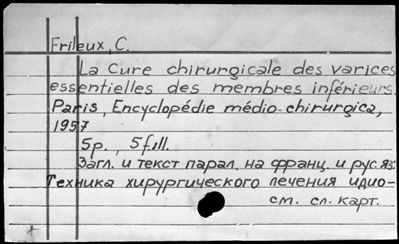 Frileux, C.
La Cure chirurgicale des varices
essentielles des membres inférieurs.
Paris, Encyclopédie médio-chirurgica,
1957
5p., 5fill.
Загл. и текст парал. на франц. и рус. яз.
Техника хирургического лечения идио-
см. сл. карт.